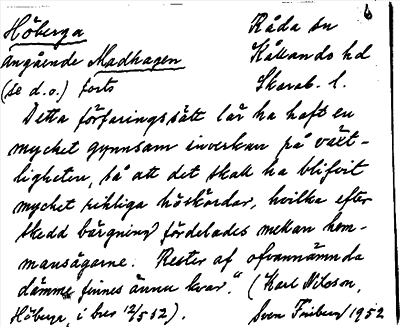 6
Höberga Råda sn
angående Madhagen Kållands hd
(se d.o.) forts Skarab. l.
Detta förfaringssätt lär ha haft en
mycket gynnsam inverkan på växt-
ligheten, så att det skall ha blifvit
mycket rikliga höskördar, hvilka efter
skedd bärgning fördelades mellan hem-
mansägarne. Rester af ofvannämnda
dämme finnes ännu kvar." (Karl Nilsson,
Höberga, i brev 12/5 52). Sven Friberg 1952